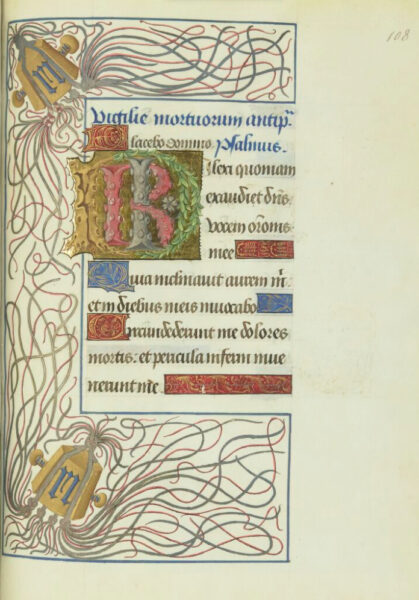 108
Vigilie mortuorum antipħ
Placebo domino. Psalmus.
Dilexi quoniam
exaudiet dn̄s
vocem orōnis
mee
Quia inclinauit aurem m̄:
et in diebus meis inuocabo
Circundederunt me dolores
mortis: et pericula inferni inue
nerunt me